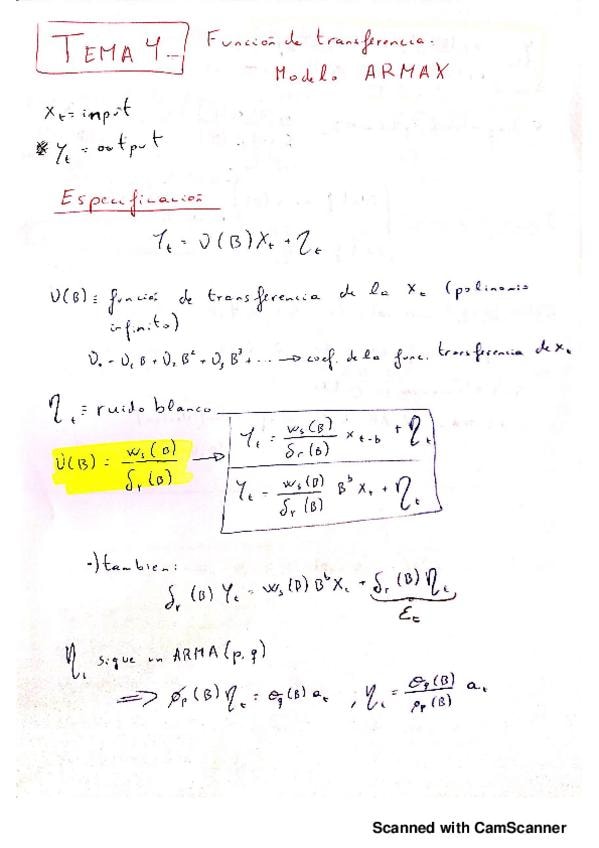 TEMA 4.-
Función de transferencia.
Modelo ARMAX
Xt = input
* Yt = output
Especificación
Yt = υ(B)Xt + ηt
υ(B) ≡ función de transferencia de la Xt (polinomio
infinito)
υ0 - υ1B + υ2B² + υ3B³ + ... → coef. de la func. transferencia de Xt
ηt ≡ ruido blanco
υ(B) = ws(B)/δr(B) → Yt = ws(B)/δr(B) Xt-b + ηt
Yt = ws(B)/δr(B) B^b Xt + ηt
-) tambien:
δr(B) Yt = ws(B) B^b Xt + δr(B) ηt
εt
ηt sigue un ARMA(p,q)
⟹ φp(B) ηt = θq(B) at , ηt = θq(B)/φp(B) at
Scanned with CamScanner